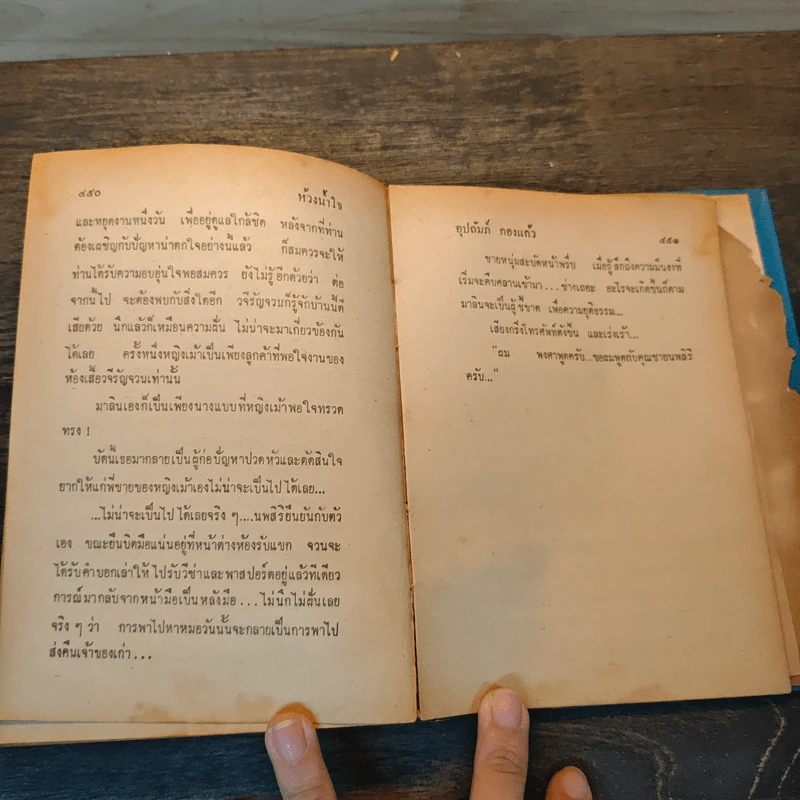 ๔๕๐ ห้วงน้ำใจ
และหยุดงานหนึ่งวัน เพื่ออยู่ดูแลใกล้ชิด หลังจากที่ท่าน
ต้องเผชิญกับปัญหาน่าตกใจอย่างนี้แล้ว ก็สมควรจะให้
ท่านได้รับความอบอุ่นใจพอสมควร ยังไม่รู้อีกตัวยว่า ต่อ
จากนี้ไป จะต้องพบกับสิ่งใดอีก วจีรัญจวนก็รู้จักบ้านนี้ดี
เสียด้วย นึกแล้วก็เหมือนความฝัน ไม่น่าจะมาเกี่ยวข้องกัน
ได้เลย ครั้งหนึ่งหญิงเม้าเป็นเพียงลูกค้าที่พอใจงานของ
ห้องเสื้อวจีรัญจวนเท่านั้น
มาลินเองก็เป็นเพียงนางแบบที่หญิงเม้าพอใจทรวด
ทรง !
บัดนี้เธอมากลายเป็นผู้ก่อปัญหาปวดหัวและตัดสินใจ
ยากให้แก่พี่ชายของหญิงเม้าเองไม่น่าจะเป็นไปได้เลย...
...ไม่น่าจะเป็นไปได้เลยจริง ๆ....นพสิริยืนยันกับตัว
เอง ขณะยืนบิดมือแน่นอยู่ที่หน้าต่างห้องรับแขก จวนจะ
ได้รับคำบอกเล่าให้ไปรับวีซ่าและพาสปอร์ตอยู่แล้วทีเดียว
การณ์มากลับจากหน้ามือเป็นหลังมือ...ไม่นึกไม่ฝันเลย
จริง ๆ ว่า การพาไปหาหมอวันนั้นจะกลายเป็นการพาไป
ส่งคืนเจ้าของเก่า...
อุปถัมภ์ กองแก้ว ๔๕๑
ชายหนุ่มสะบัดหน้าพรืบ เมื่อรู้สึกถึงความมึนงงที่
เริ่มจะคืบคลานเข้ามา...ช่างเถอะ อะไรจะเกิดขึ้นก็ตาม
มาลินจะเป็นผู้ชี้ขาด เพื่อความยุติธรรม...
เสียงกริ่งโทรศัพท์ดังขึ้น และเร่งเร้า...
"ผม พงศาพูดครับ...ขอผมพูดกับคุณชายนพสิริ
ครับ..."